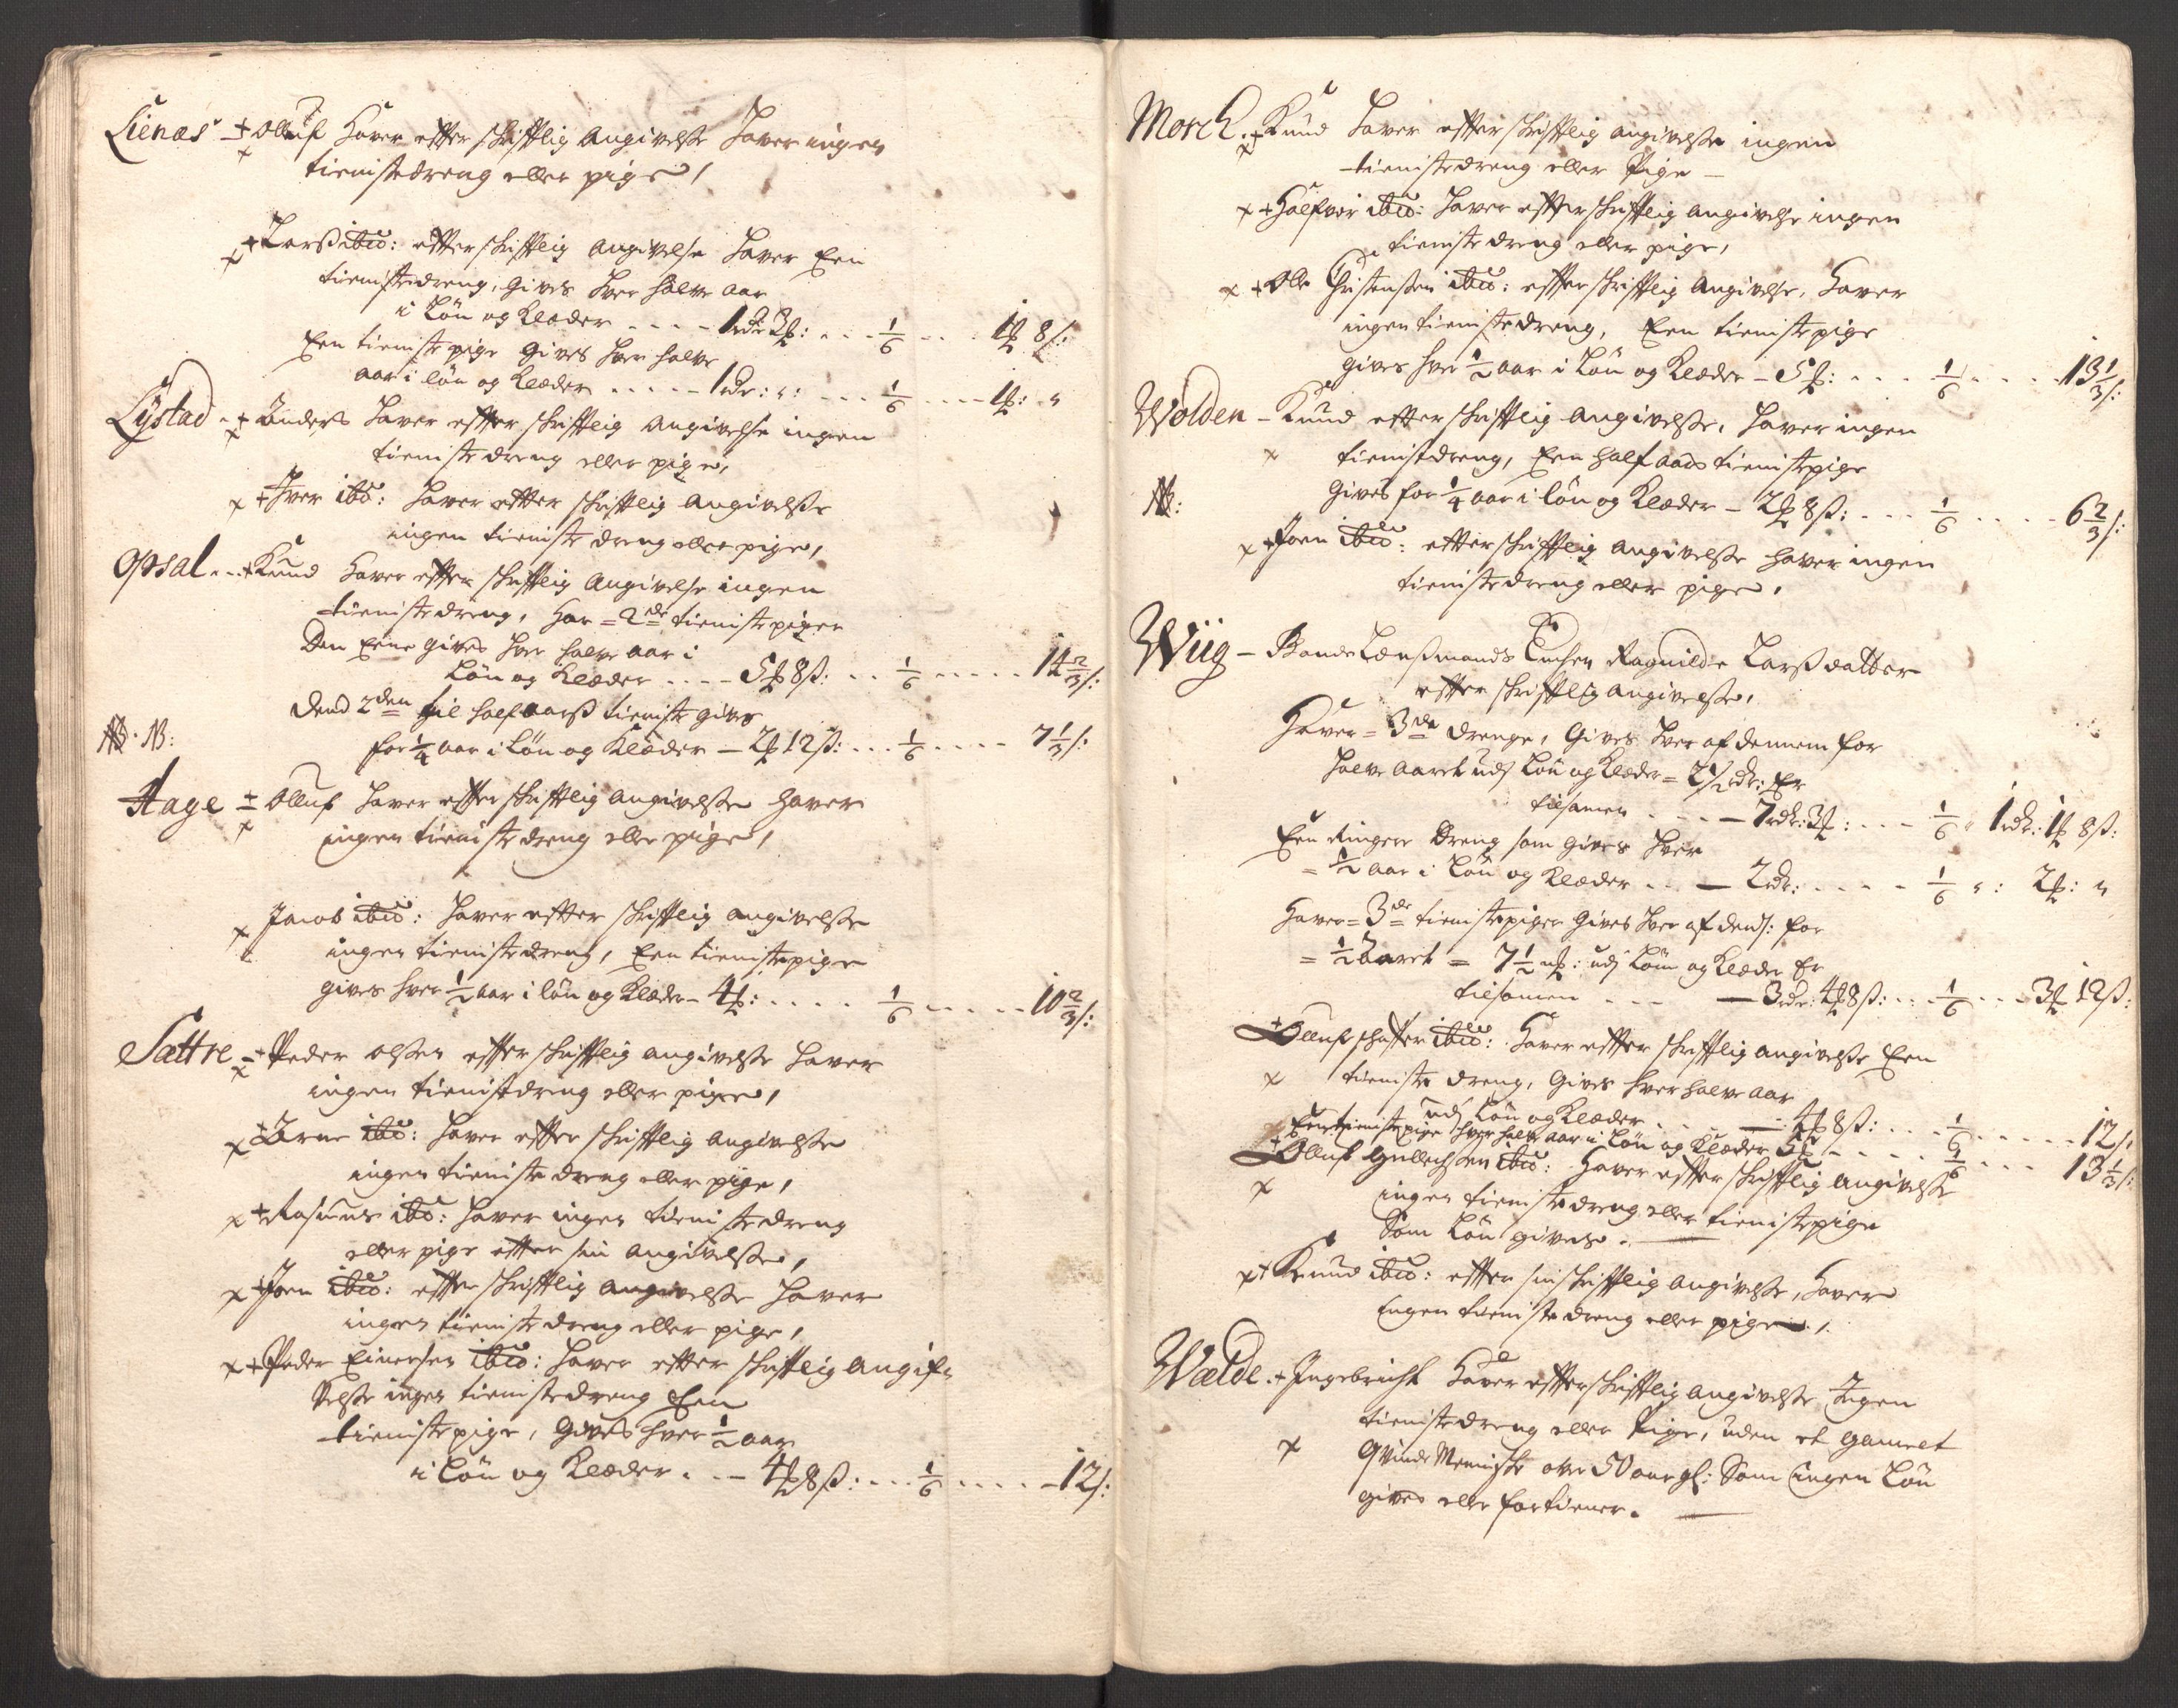 Lienæs ± Olluf Haver effter schrifftlig Angivelse haver ingen
tienistedreng eller pige,
+ Larß ibid: effter schrifftlig Angivelse haver Een
tienistedreng, gives hver halve aar
i Løn og Klæder - - - - 1 rdr 3 ℔: - - - 1/6 - - - 1 ℔ 8 s:
Een tieniste pige gives hver halve
aar i løn og Klæder - - - - - 1 rdr: „: - - - 1/6 - - - - 1 ℔: „
Lystad - + Anders haver effter schrifftlig Angivelse ingen
tieniste dreng eller pige,
x + Iver ibd: haver effter schrifftlig Angivelse
ingen tieniste dreng eller pige,
Opsal - - + Knud haver effter schrifftlig Angivelse ingen
tienistedreng, har = 2de tienistepiger
Den Eene gives hver halve aar i
Løn og Klæder - - - - 5 ℔ 8 ß: - - 1/6 - - - - - 14 2/3 s:
dend 2den til halfaarß tieniste gives
NB. NB: for 1/4 aar i Løn og Klæder - 2 ℔ 12 ß: - - - 1/6 - - - - 7 1/3 s:
Hage ± Olluf haver effter schrifftlig Angivelse haver
x ingen tieniste dreng eller pige,
x Jacob ibid: haver effter schrifftlig angivelse
ingen tienistedreng, Een tienistepige
gives hver 1/2 aar i løn og Klæder - 4 ℔: - - - - 1/6 - - - - - 10 2/3 s:
Sættre - + Peder Olsen effter schrifftlig angivelse haver
x ingen tienistdreng eller pige,
x + Arne ibd: haver effter schrifftlig angivelse
ingen tieniste dreng eller pige,
x + Rasmus ibd: haver ingen tienistedreng
eller pige effter sin angivelse,
x + Joen ibid: effter schrifftlig angivelse haver
ingen tieniste dreng eller pige,
x + Peder Einersen ibid: haver effter schrifftlig angif-
velse ingen tienistedreng Een
tienistepige, gives hver 1/2 aar
i Løn og Klæder. - - 4 ℔ 8 ß: - - - 1/6 - - - - - 12 s:
Morch. + Knud haver effter schrifftlig angivelse ingen
x tienistedreng eller Pige -
x + Halfvor ibid: haver effter schrifftlig angivelse ingen
tieniste dreng eller pige,
x + Olle Christensen ibid: effter schrifftlig Angivelse, haver
ingen tienistedreng, Een tienistepige
gives hver 1/2 aar i Løn og Klæder - 5 ℔: - - - 1/6 - - - - 13 1/3 s:
Wolden - Knud effter schrifftlig angivelse, haver ingen
x tienistdreng, Een half aars tienistepige
NB: gives for 1/4 aar i løn og Klæder - 2 ℔ 8 ß: - - - 1/6 - - - - 6 2/3 s:
x + Joen ibid: effter schrifftlig angivelse haver ingen
tienistedreng eller pige,
Wiig - Bonde Lænßmands Enchen Ragnilde Larß datter
effter schrifftlig angivelse,
Haver = 3de drenge, Gives hver af dennem for
halve aaret udj Løn og Klæder = 2 1/2 rdr: Er
tilsamen - - - - 7 rdr: 3 ℔: - - - 1/6 „ 1 rdr: 1 ℔ 8 ß:
Een Ringere Dreng som gives hver
= 1/2 aar i Løn og Klæder - - - 2 rdr: - - - - 1/6 „: 2 ℔: „
Haver = 3de tienistepiger Gives hver af dends: for
= 1/2 Aaret = 7 1/2 ℔: udj Løn og Klæder Er
tilsamen - - - - 3 rdr: 4 ℔ 8 ß: - - 1/6 - - - 3 ℔ 12 ß:
+ Olluf ibid: Haver effter schrifftlig angivelse Een
x tieniste dreng, Gives hver halve aar
udj Løn og Klæder - - - 4 ℔ 8 ß: - - - 1/6 - - - - - 12 s:
Een tienistepige hver halve aar i Løn og Klæder 5 ℔ - - - - - 1/6 - - - 13 1/3 s:
+ Olluf Gullichsen ibid: Haver effter schrifftlig angivelse
x ingen tienistedreng eller tienistepige
Som Løn gives. -
x + Knud ibid: effter sin schrifftlig angivelse, haver
Ingen tieniste dreng eller pige,
Wælde. + Ingebricht haver effter schrifftlig angivelse Ingen
tienistedreng eller Pige, uden et gamelt
x Qvinde Menniske over 50 aar gl: Som ingen Løn
gives eller fortiener. -